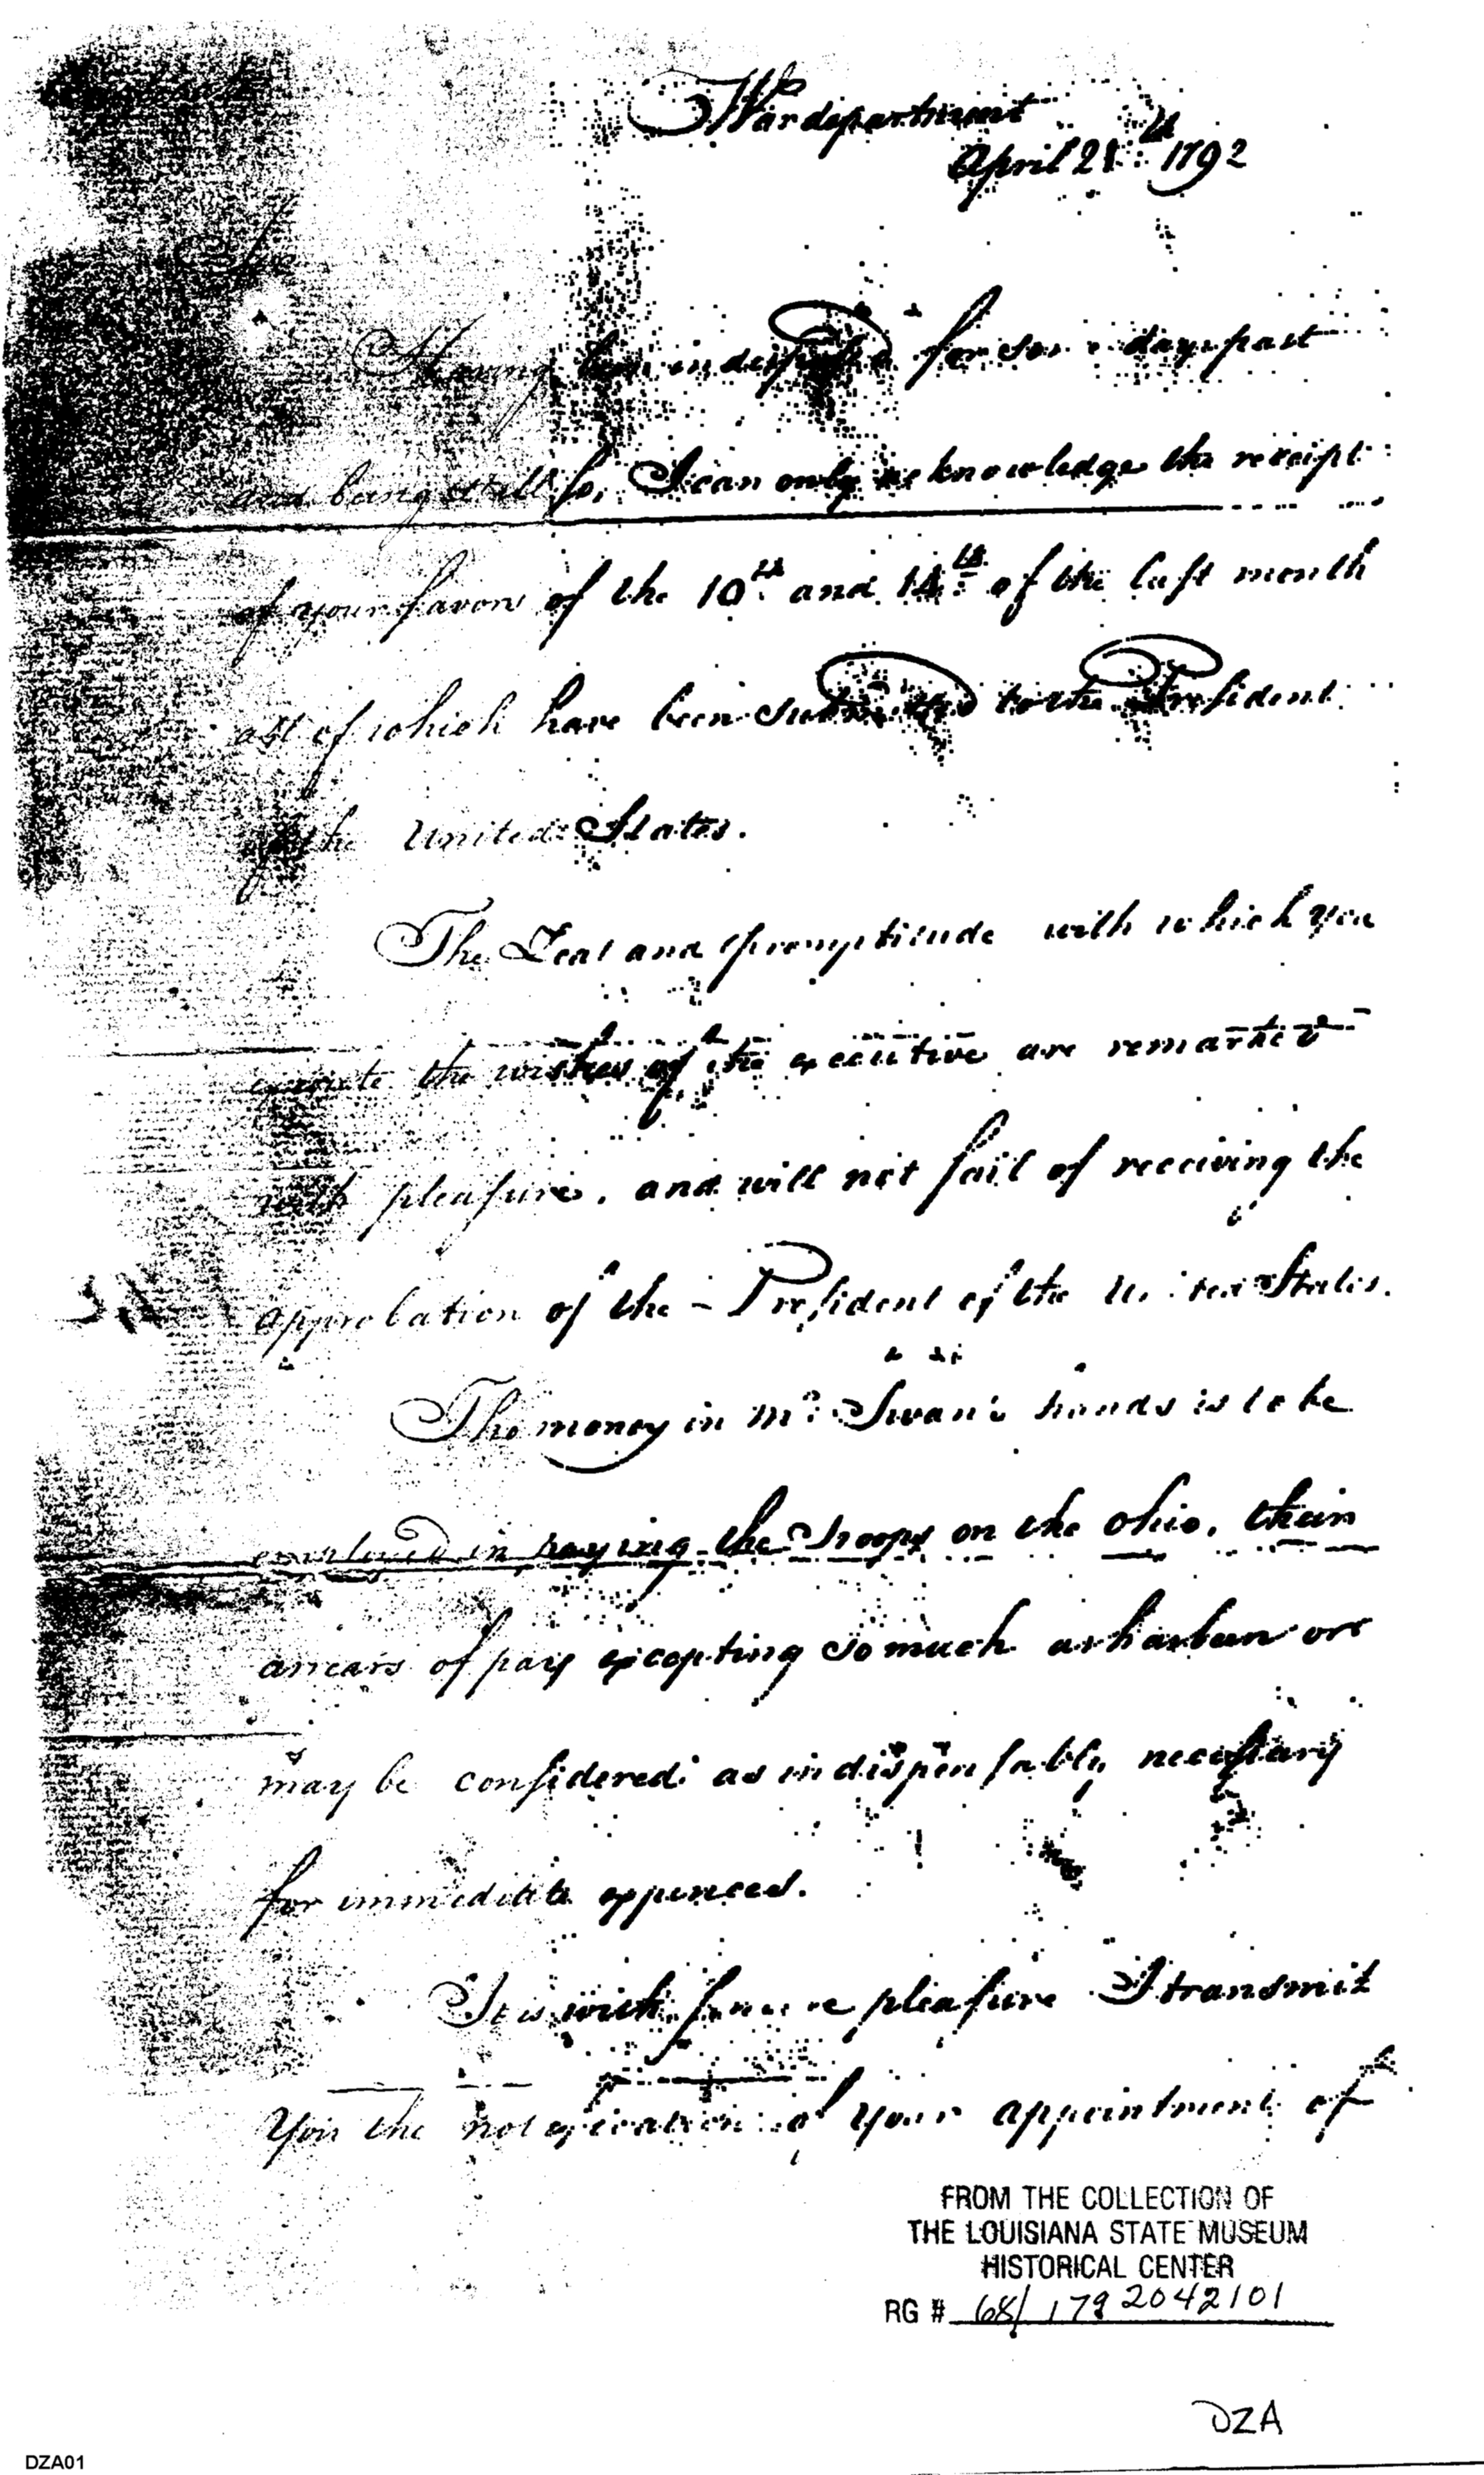 War department
April 21st 1792
Sir
Having been indisposed for some days past
and being still so, I can only acknowledge the receipt
of your favors of the 10th and 14th of the last month
all of which have been submitted to the President
of the United States.
The Zeal and promptitude with which you
execute the wishes of the executive are remarked
with pleasure, and will not fail of receiving the
approbation of the – President of the United States.
The money in Mr. Swan's hands is to be
employed in paying the Troops on the Ohio, their
arrears of pay excepting so much as has been or
may be considered as indispensably necessary
for immediate expences.
It is with sincere pleasure I transmit
you the notification of your appointment of
FROM THE COLLECTION OF
THE LOUISIANA STATE MUSEUM
HISTORICAL CENTER
RG # 68/ 1792042101
DZA
DZA01